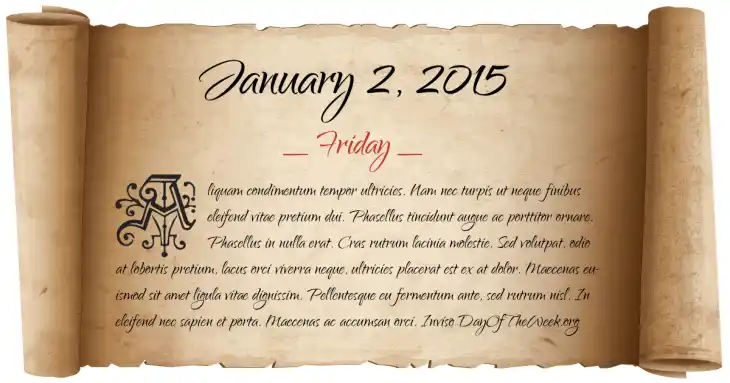 January 2, 2015
_ Friday _
Aliquam condimentum tempor ultricies. Nam nec turpis ut neque finibus
eleifend vitae pretium dui. Phasellus tincidunt augue ac porttitor ornare.
Phasellus in nulla erat. Cras rutrum lacinia molestie. Sed volutpat, odio
at lobortis pretium, lacus orci viverra neque, ultricies placerat est ex at dolor. Maecenas eu-
ismod sit amet ligula vitae dignissim. Pellentesque eu fermentum ante, sed rutrum nisl. In
eleifend nec sapien et porta. Maecenas ac accumsan orci. Inviso DayOfTheWeek.org